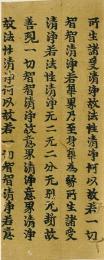 所生諸受清淨故法性清淨何以故若一切
智智清淨若身界乃至身觸為緣所生諸受
清淨若法性清淨无二无二分无別无斷故
善現一切智智清淨故意界清淨意界清淨
故法性清淨何以故若一切智智清淨若意